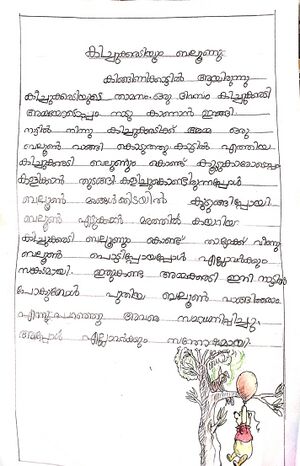 കിച്ചുക്കരടിയും ബലൂണും
കിങ്ങിണിക്കാട്ടിൽ ആയിരുന്നു
കിച്ചുക്കരടിയുടെ താമസം. ഒരു ദിവസം കിച്ചുക്കരടി
അമ്മയോടൊപ്പം നാടു കാണാൻ ഇറങ്ങി
നാട്ടിൽ നിന്നു കിച്ചുക്കരടിക്ക് അമ്മ ഒരു
ബലൂൺ വാങ്ങി കൊടുത്തു. കാട്ടിൽ എത്തിയ
കിച്ചുക്കരടി ബലൂണും കൊണ്ട് കൂട്ടുകാരോടൊപ്പം
കളിക്കാൻ തുടങ്ങി. കളിച്ചുകൊണ്ടിരുന്നപ്പോൾ
ബലൂൺ മരങ്ങൾക്കിടയിൽ കുടുങ്ങിപ്പോയി
ബലൂൺ എടുക്കാൻ മരത്തിൽ കയറിയ
കിച്ചുക്കരടി ബലൂണും കൊണ്ട് താഴേക്ക് വീണു
ബലൂൺ പൊട്ടിപ്പോയപ്പോൾ എല്ലാവർക്കും
സങ്കടമായി. ഇതുകണ്ട അമ്മക്കരടി ഇനി നാട്ടിൽ
പോകുമ്പോൾ പുതിയ ബലൂൺ വാങ്ങിത്തരാം
എന്നു പറഞ്ഞു അവരെ സമാധാനിപ്പിച്ചു.
അപ്പോൾ എല്ലാവർക്കും സന്തോഷമായി.